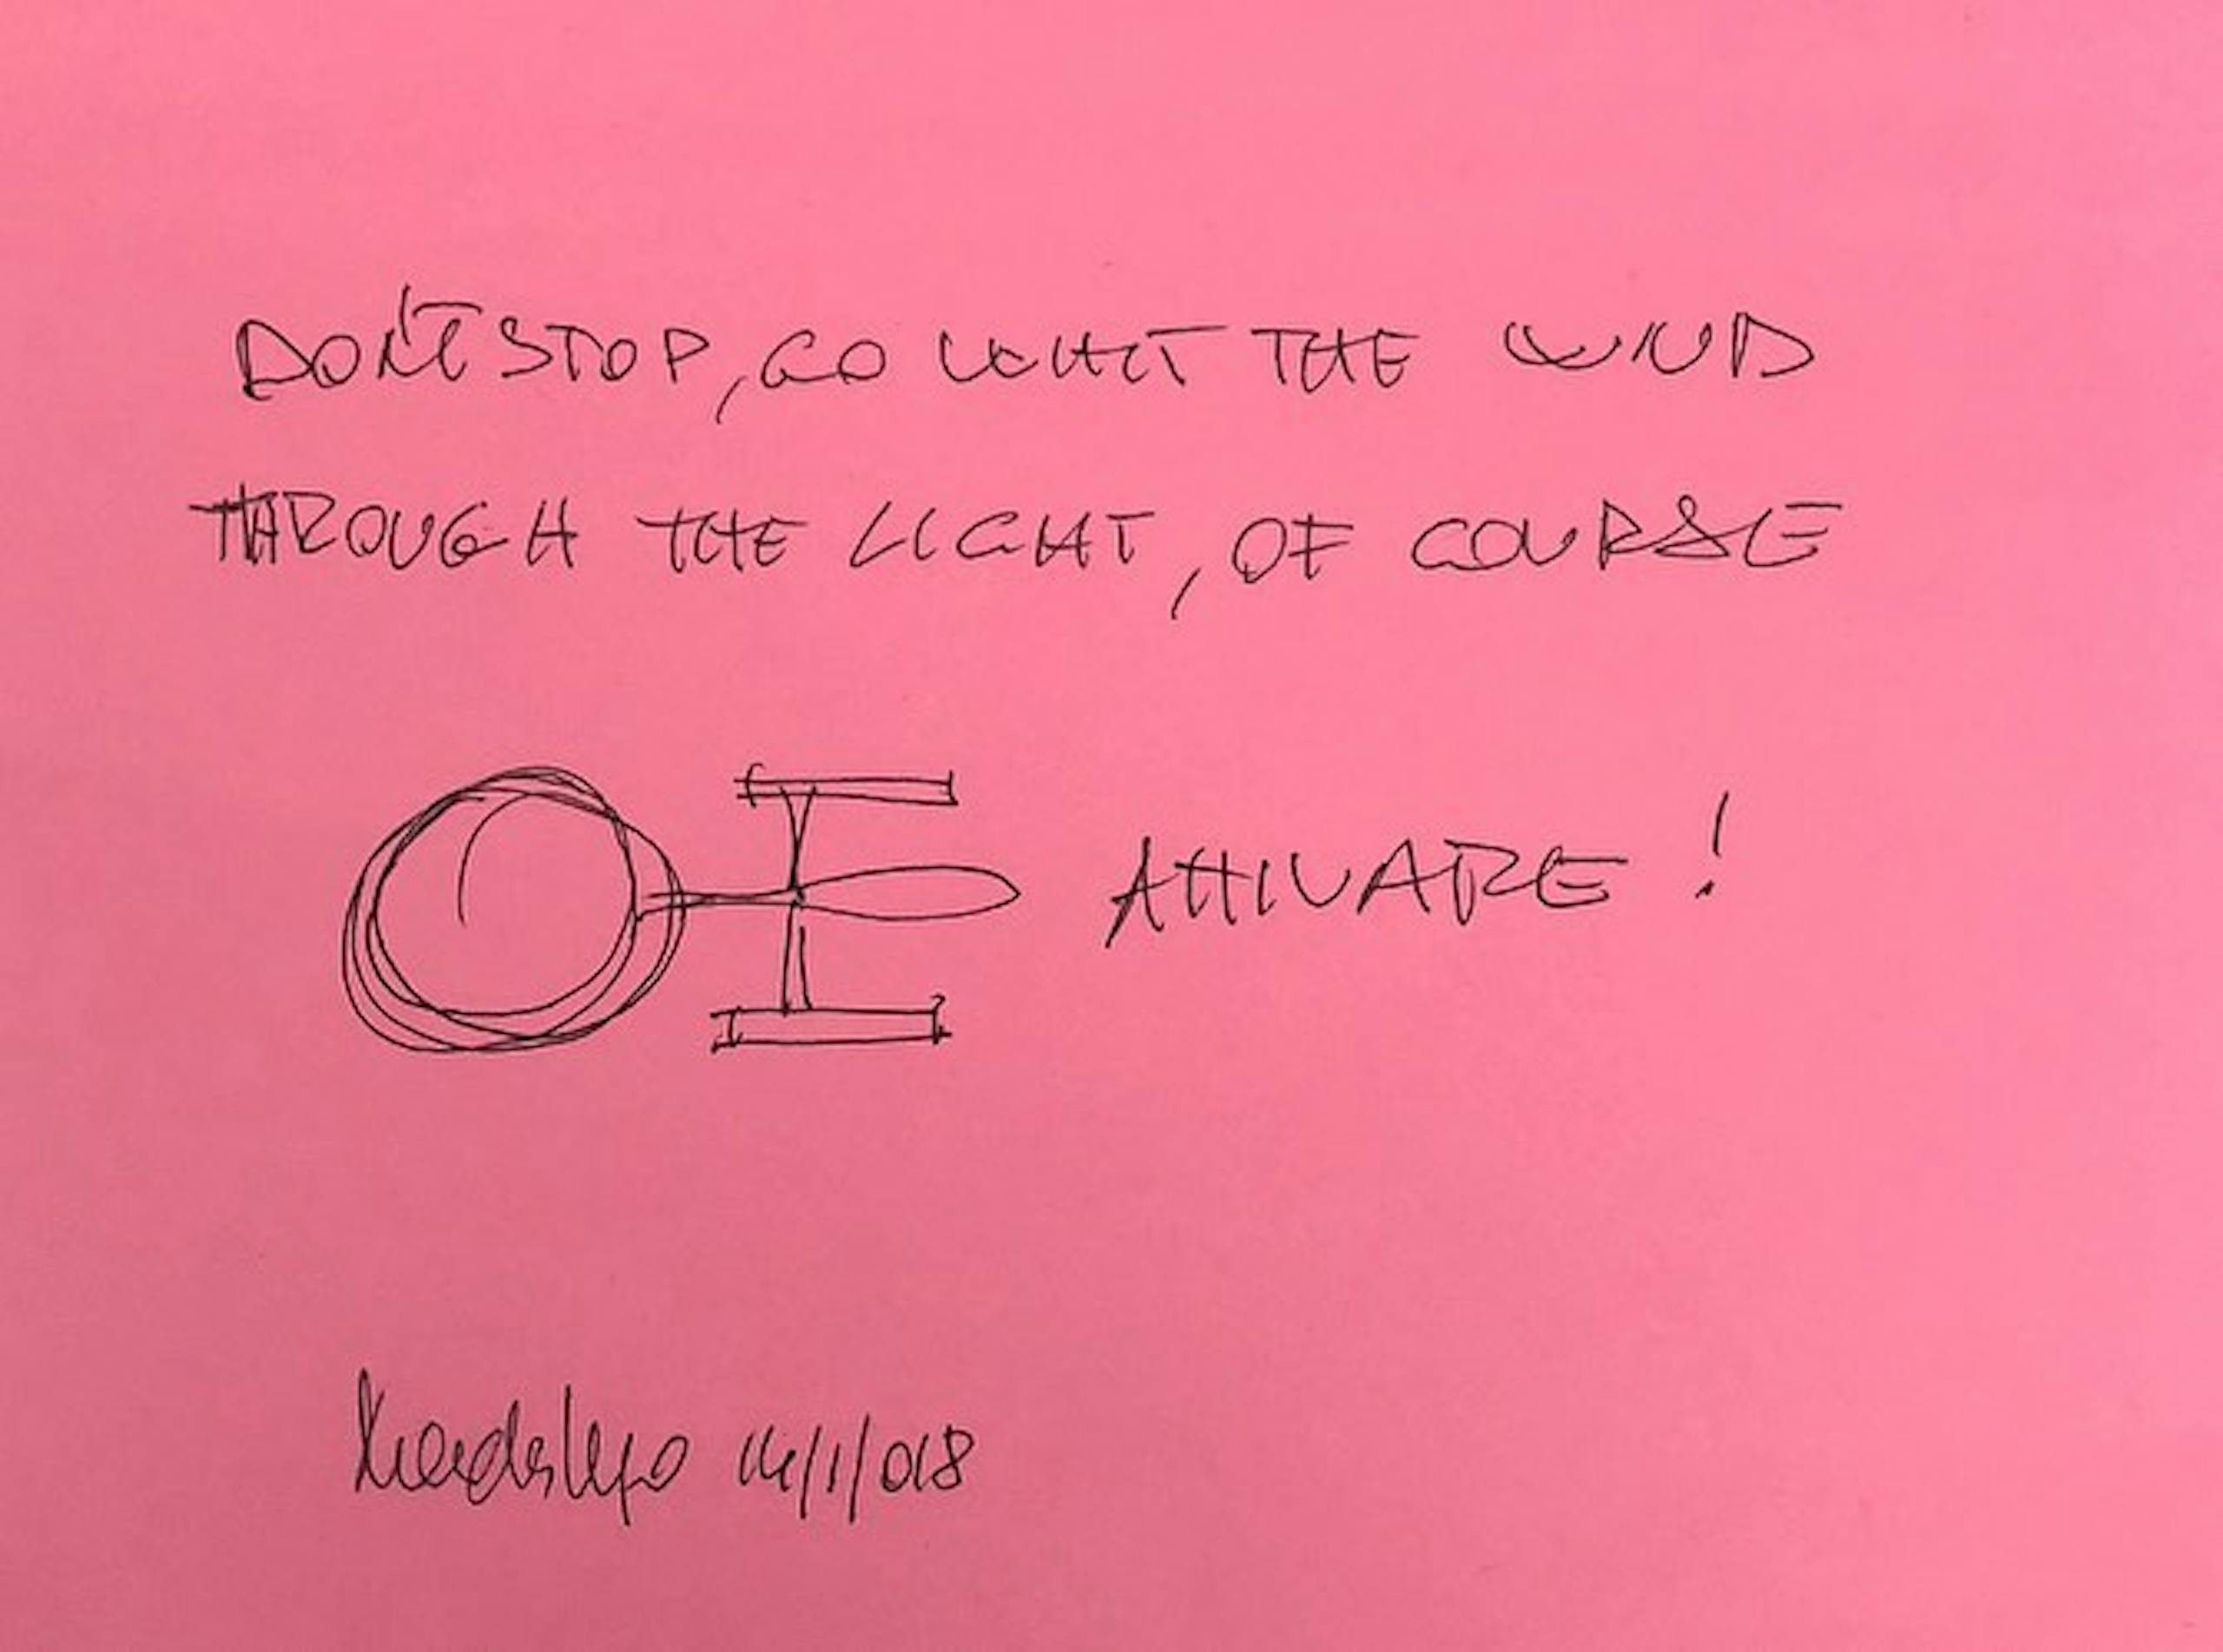 DON'T STOP, GO WHIT THE WIND
THROUGH THE LIGHT, OF COURSE
ATTIVARE!
14/1/018